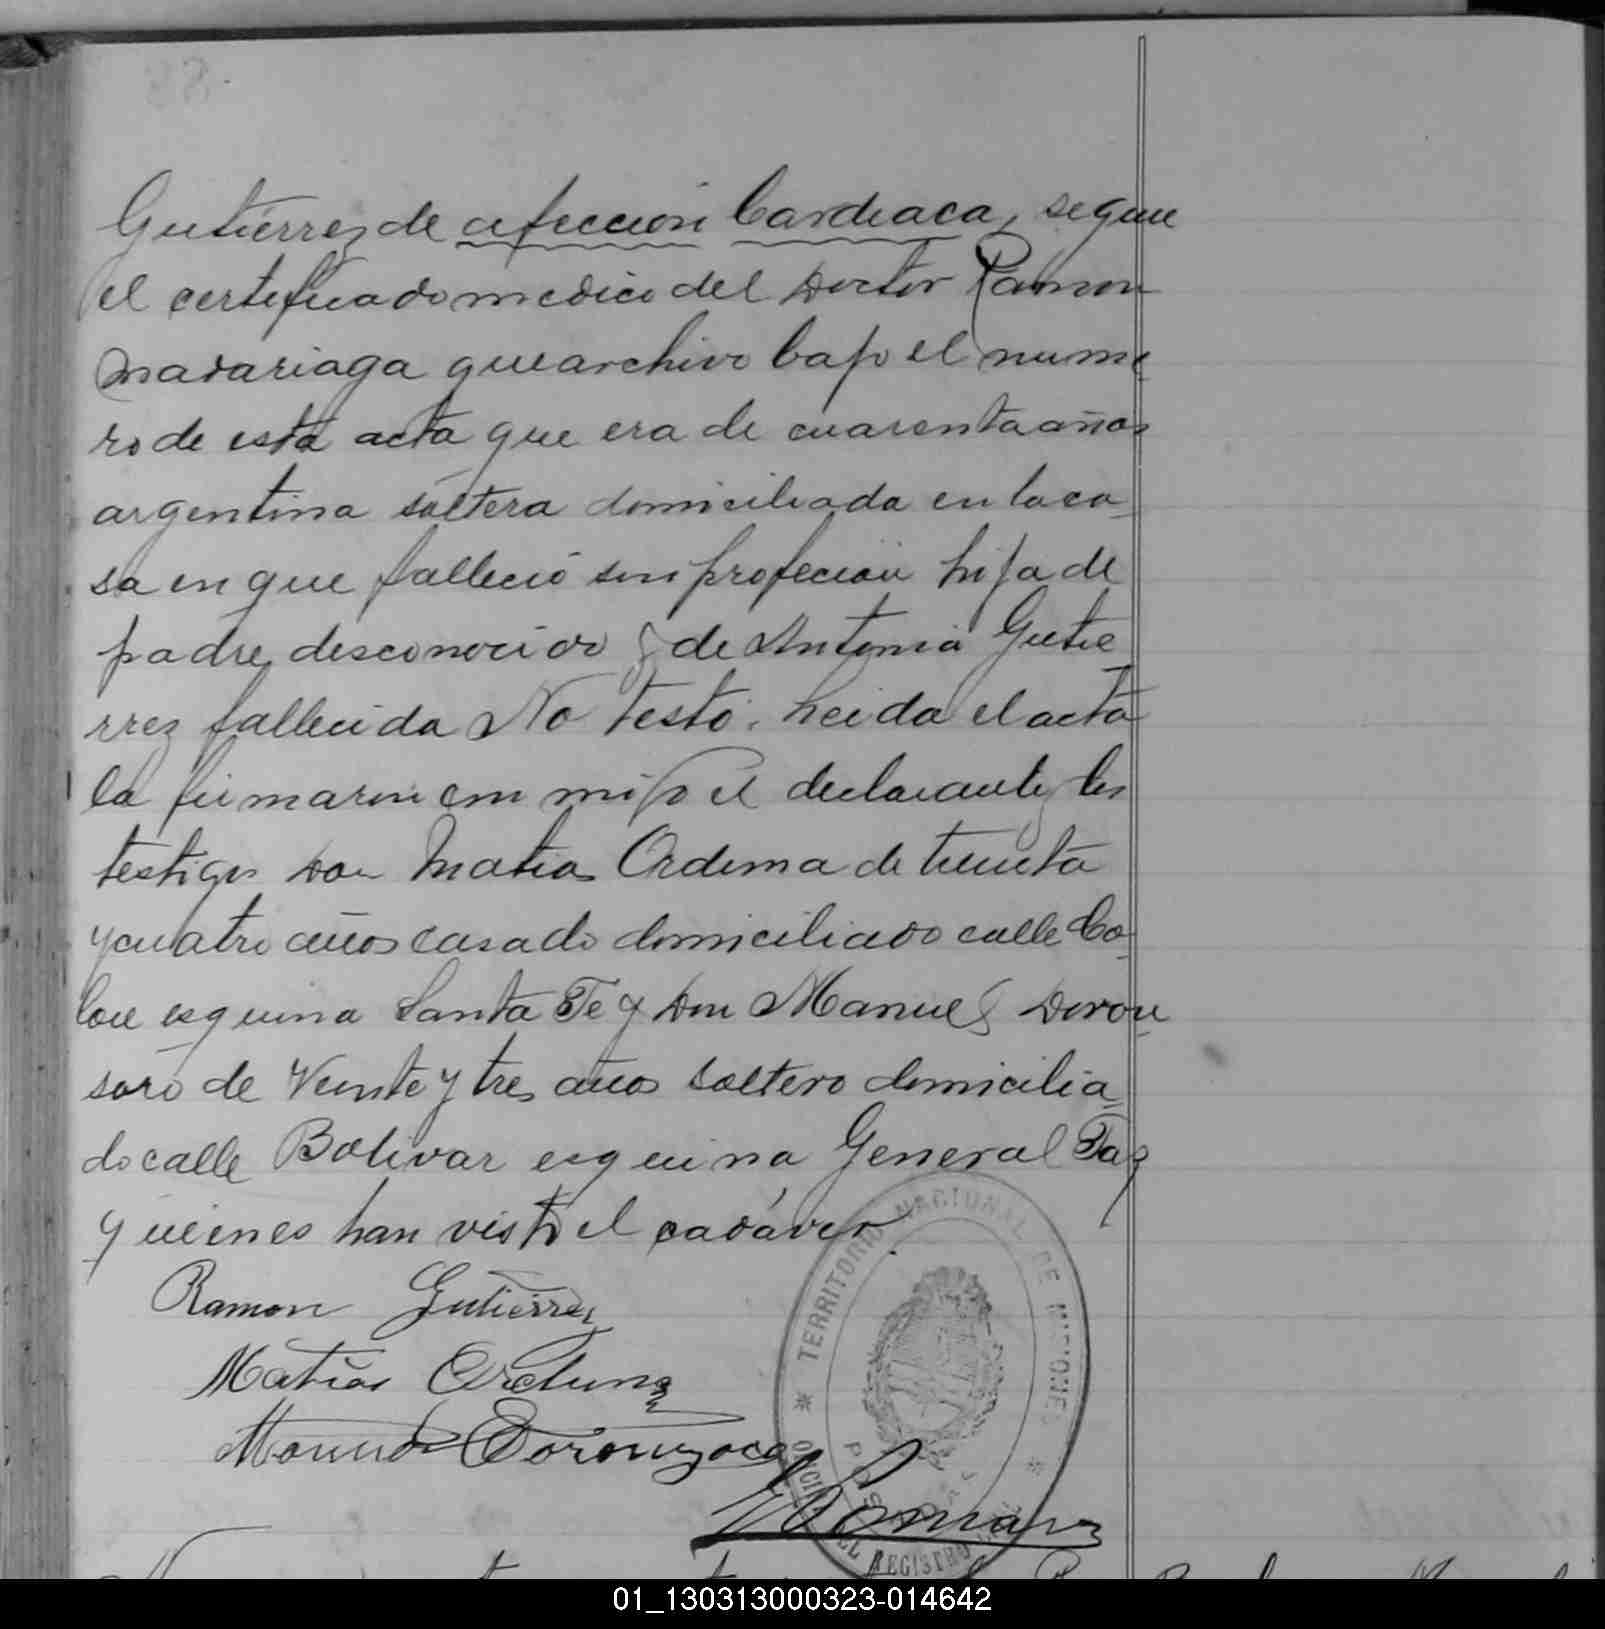 Gutierrez de afeccion Cardiaca, segun
el certificado medico del Doctor Ramon
Madariaga que archivo bajo el nume
ro de esta acta que era de cuarenta años
argentina soltera domiciliada en la ca
sa en que falleció sin profecion hija de
padre desconocido y de Antonia Gutie
rrez fallecida No testó. Leida el acta
la firmaron conmigo el declarante y los
testigos Don Matias Orduna de treinta
y cuatro años casado domiciliado calle Co
lon esquina Santa Fe y Don Manuel Doron
soro de Veinte y tres años soltero domicilia
do calle Bolivar esquina General Paz
quienes han visto el cadáver.
Ramon Gutierrez
Matias Orduna
Manuel Doronzoro
TERRITORIO NACIONAL DE MISIONES
POSADAS
OFICINA DEL REGISTRO CIVIL
01_130313000323-014642